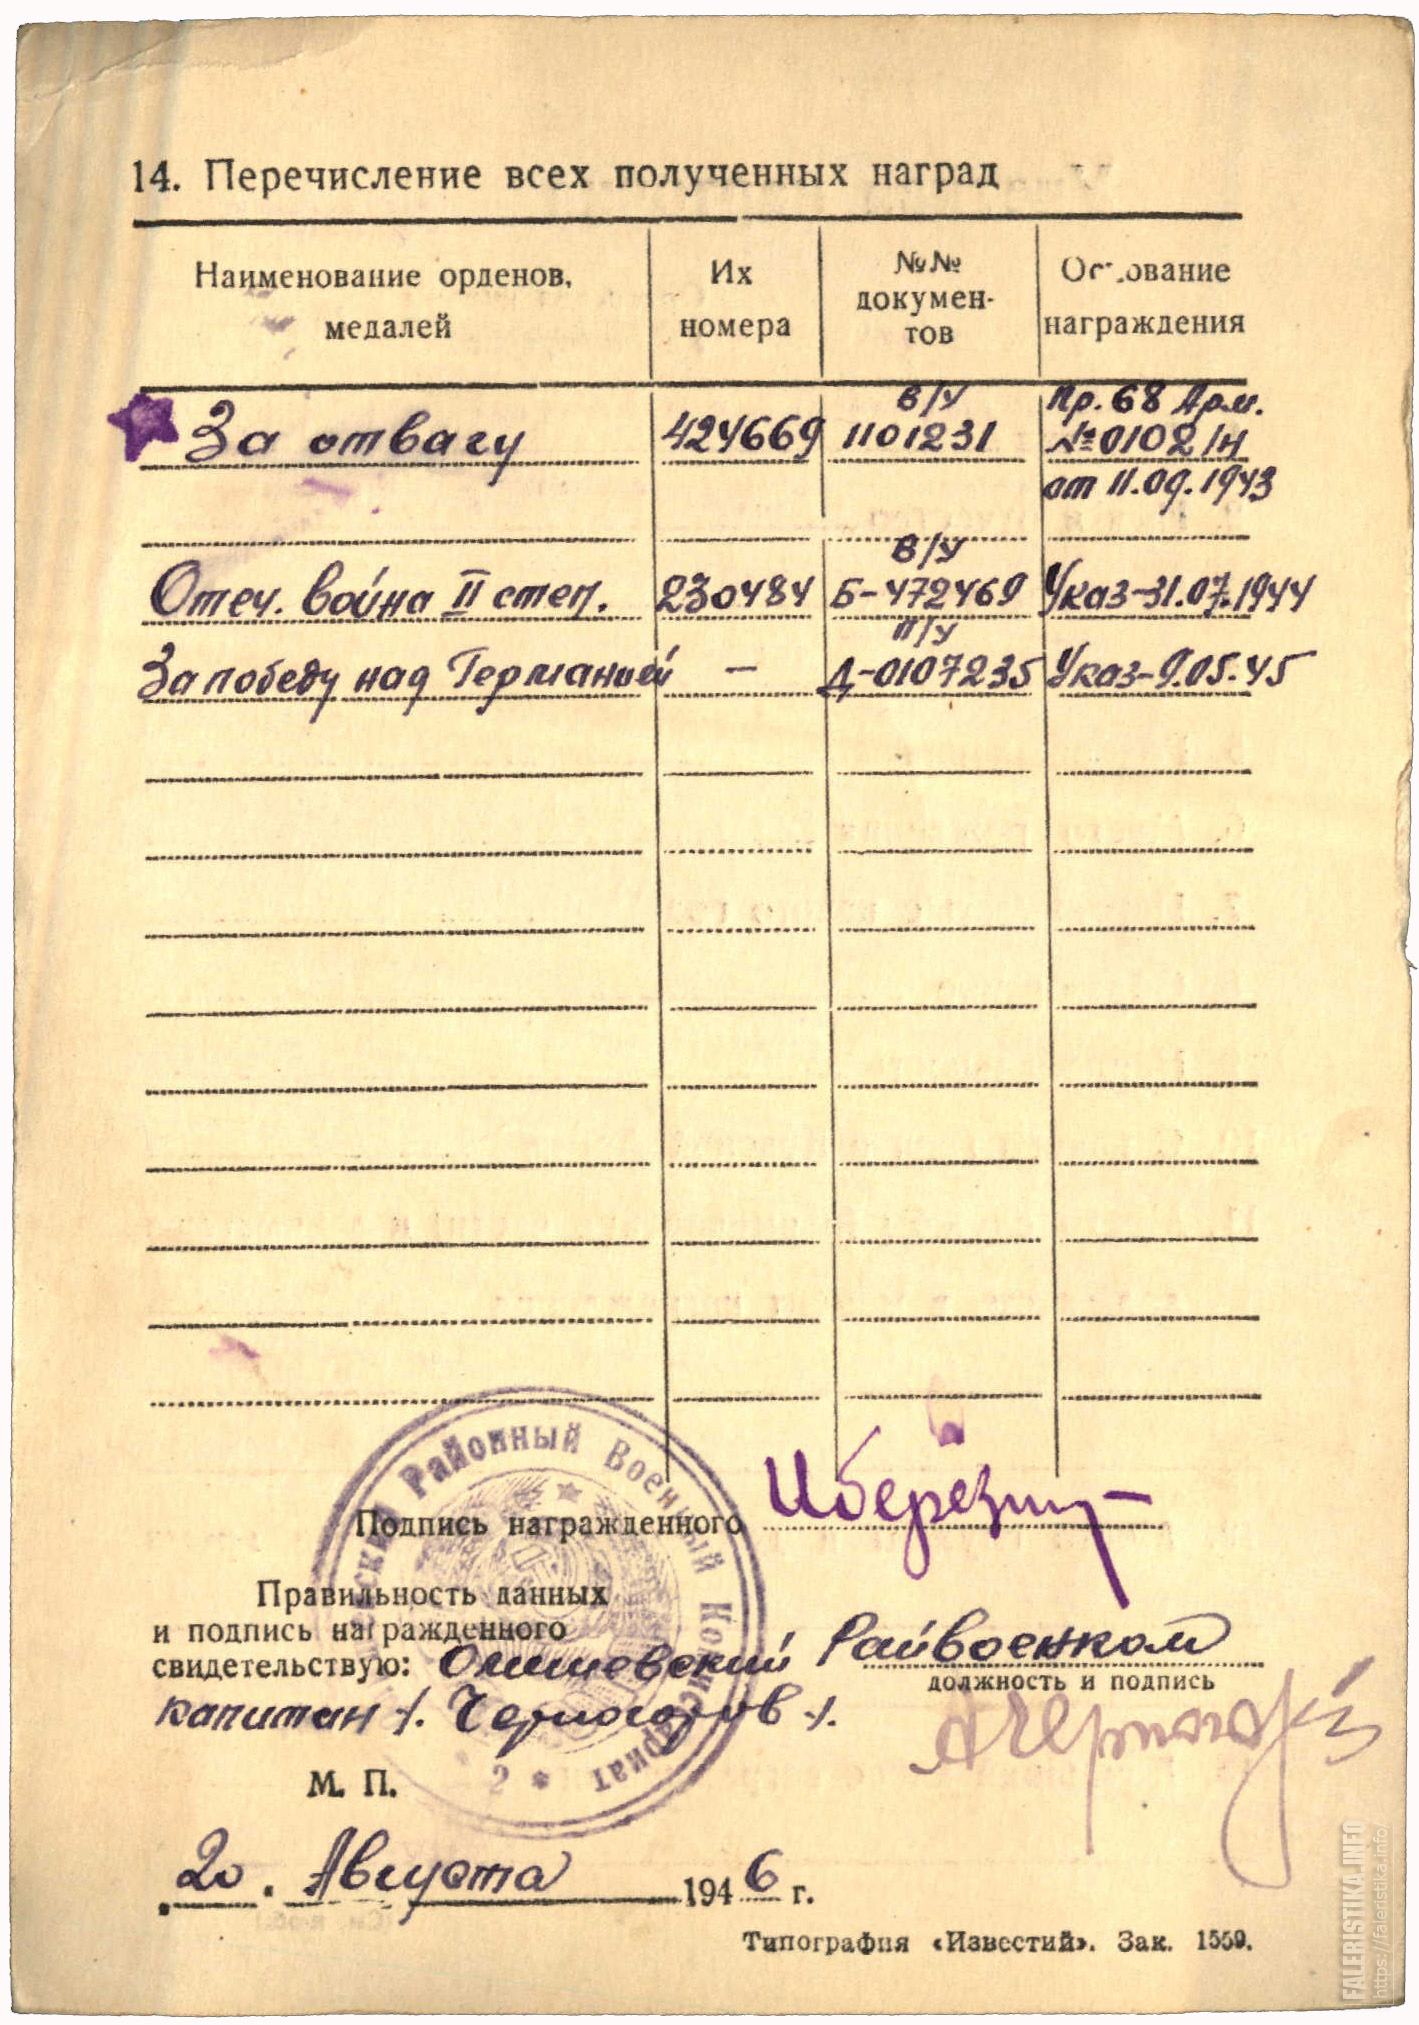 14. Перечисление всех полученных наград
Наименование орденов, медалей
Их номера
№№ докумен-тов
Основание награждения
За отвагу 424669 В/У 1101231 Пр. 68 Арм. №0102/н от 11.09.1943
Отеч. война II степ. 230484 В/У Б-472469 Указ-31.07.1944
За победу над Германией — П/У Д-0107235 Указ-9.05.45
Подпись награжденного
Правильность данных
и подпись награжденного
свидетельствую: Олишевский Райвоенком
должность и подпись
капитан /. Черногоров /.
Районный Военный Комиссариат
2
М. П.
20. Августа 1946 г.
Типография «Известий». Зак. 1559.
FALERISTIKA.INFO
https://faleristika.info